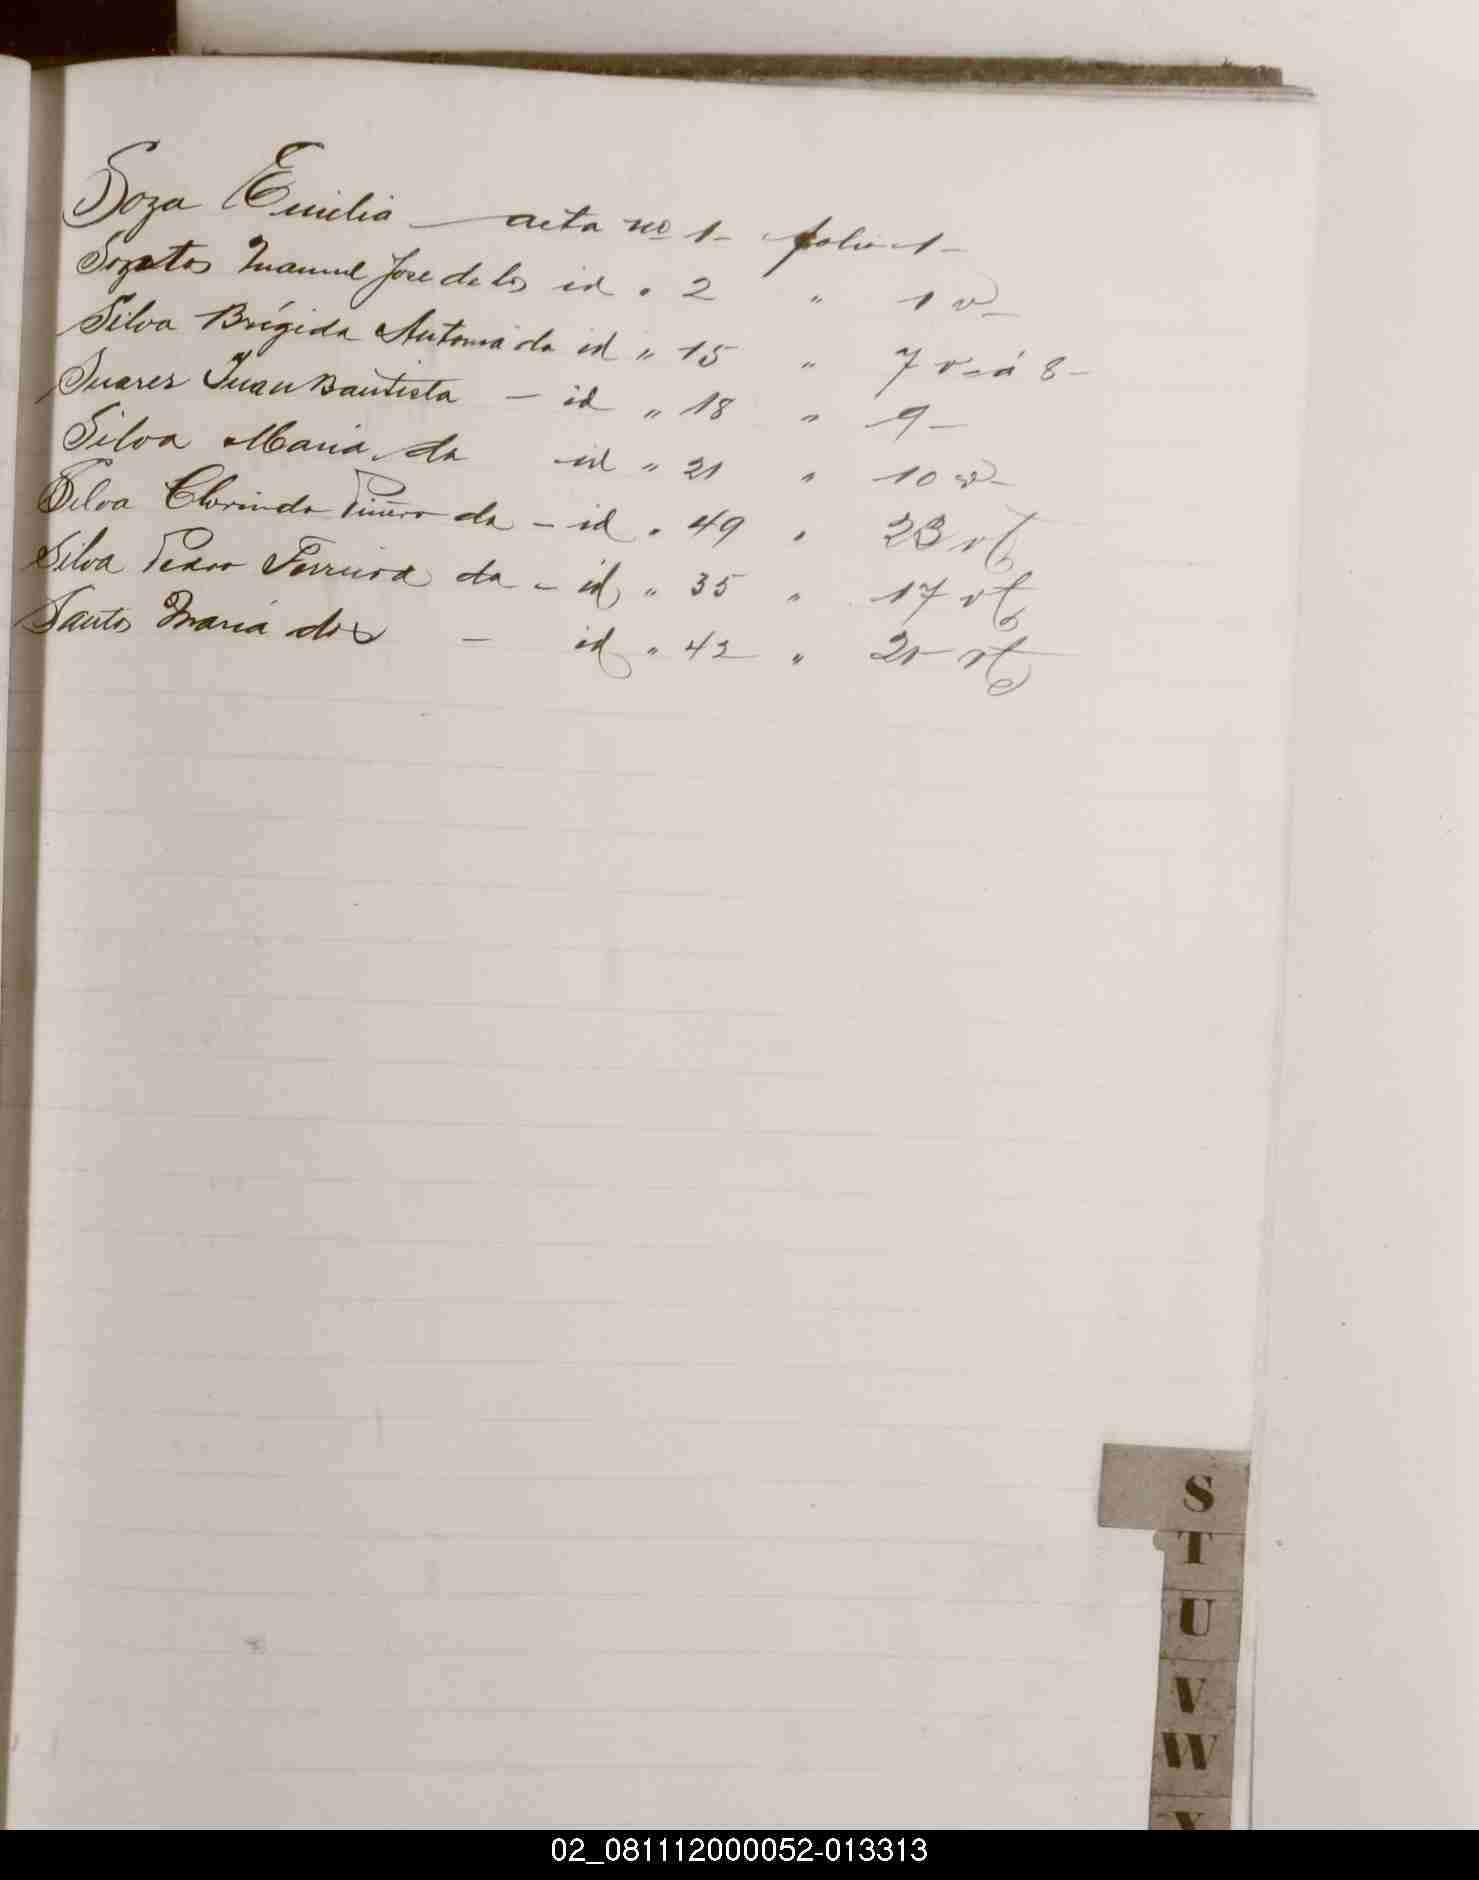 Soza Emilia — acta nº 1 - folio 1 -
Santos Manuel Jose de los id " 2 " 1 v -
Silva Brígida Antonia da id " 15 " 7 v - á 8 -
Suares Juan Bautista - id " 18 " 9 -
Silva Maria da id " 21 " 10 v -
Silva Clorinda Piñero da - id " 49 " 23 vta
Silva Pedro Ferreira da - id " 35 " 17 vta
Santos María dos - id " 42 " 20 vta
S
T
U
V
W
X
02_081112000052-013313